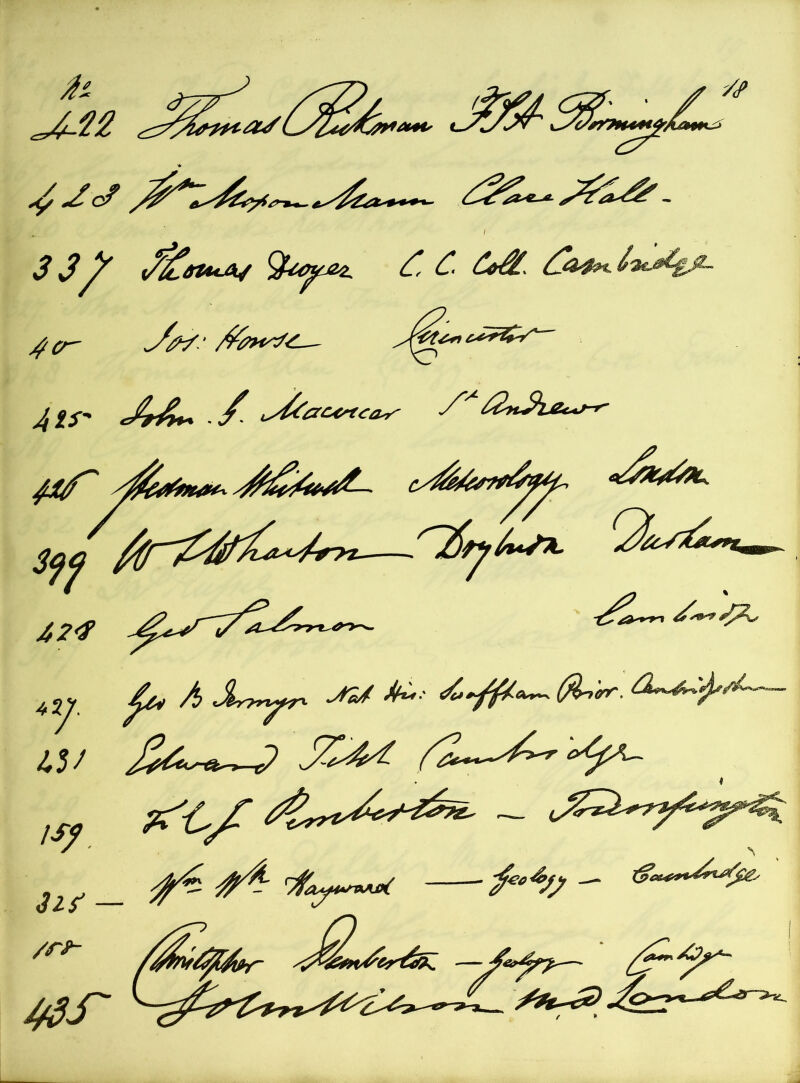 No 18
422 Thomas Rickman FSA Birmingham
423 Wm Moxon Mann Clare Hall -
337 Thomas Dwyer C. C. Coll. Cambridge
40 Jos: Howse Cirencester
425 John. G. Macvicar St Andrews
426 Stedman Whitwell Meteorology London
399 W L Wharton Dryburn Durham
428 Geo Salmon Cambridge
427. Geo B Jermyn Nat His: Swaffham Prior. Cambridgesh
431 Edward Cambridge
159. Pemberton - Trumpington
325 - Wm Wk Hayward - Geology - Cambridge
158 Christopher Pemberton - Geology Cambridge
435 John Wilson M.D. London